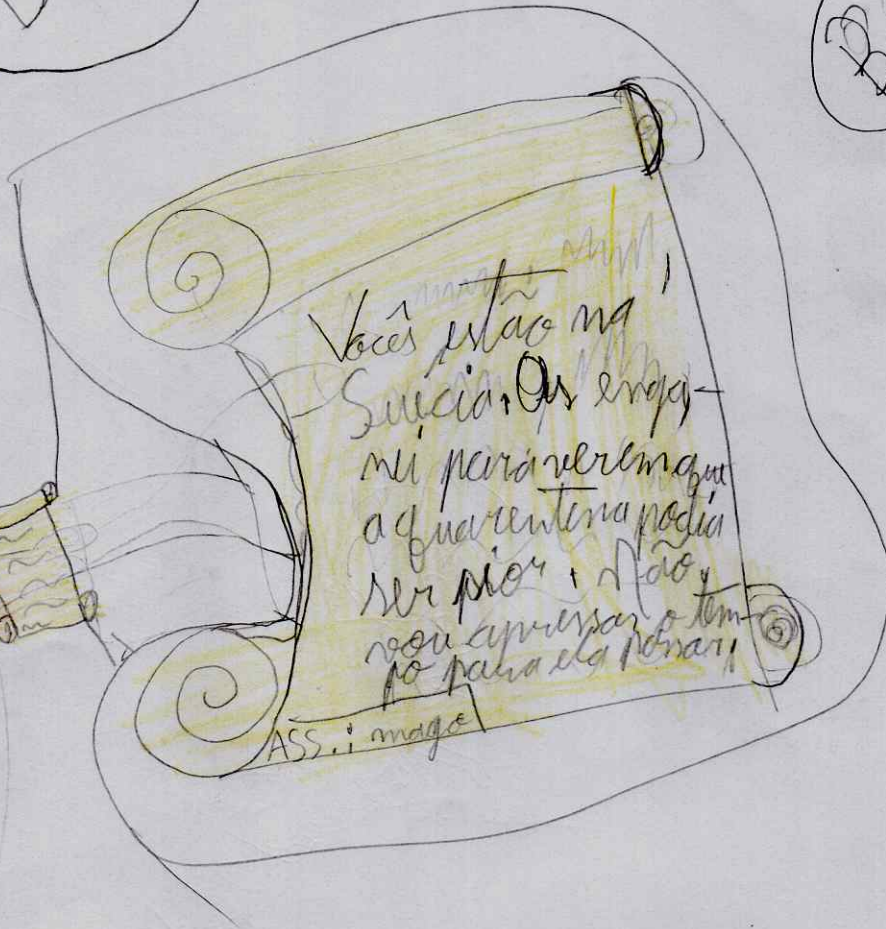 Vocês estão na
Suécia. Os enga-
nei para verem que
a quarentena podia
ser pior. Não
vou apressar o tem-
po para ela passar.
ASS.: mago